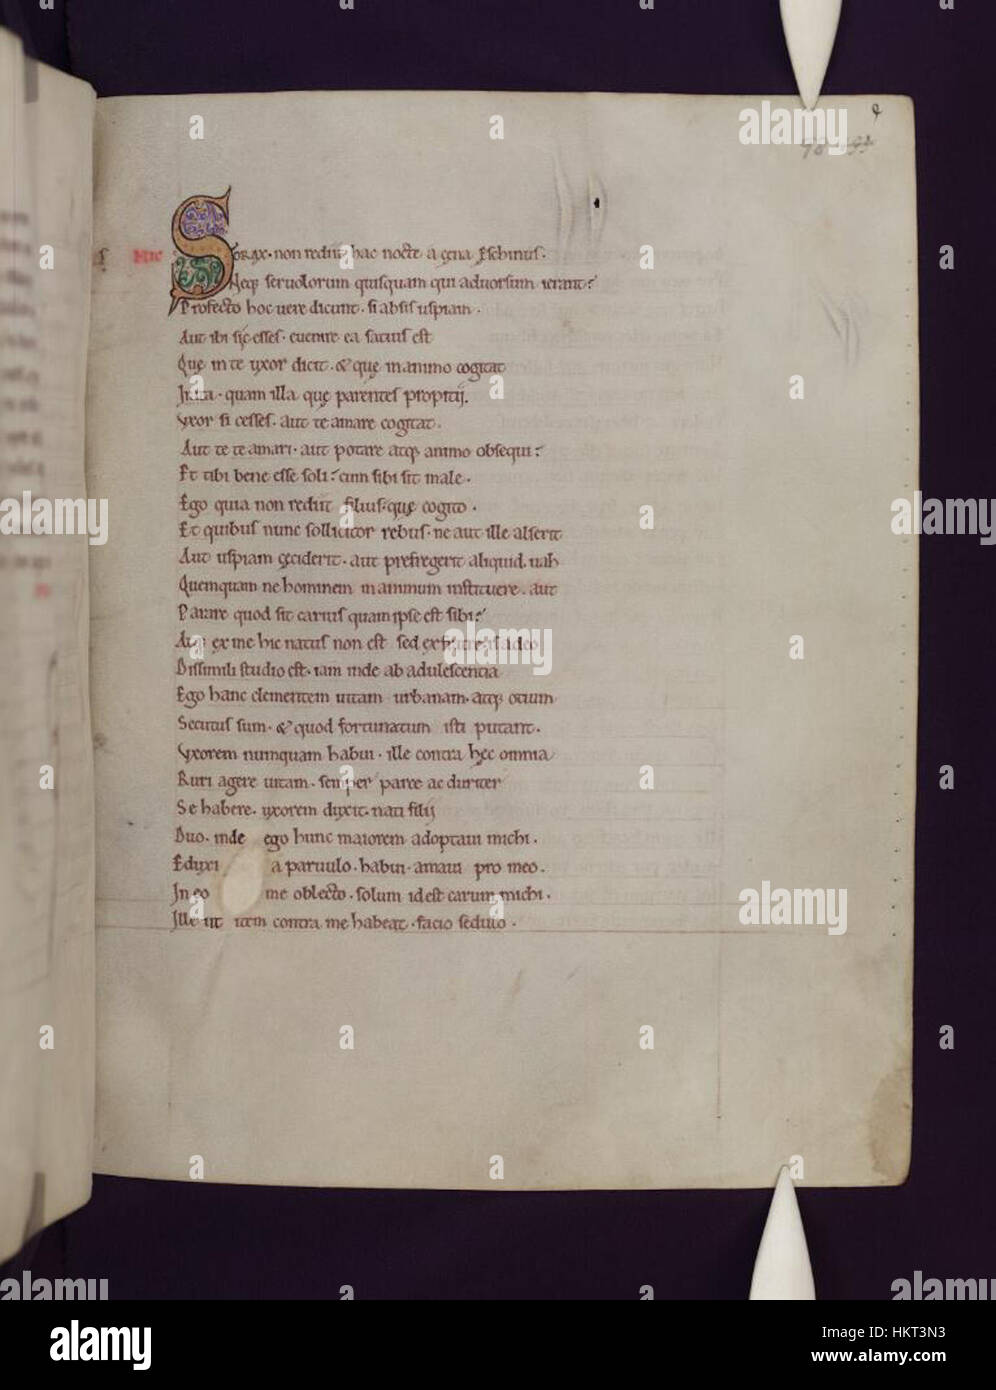 MIC Storax. non rediit hac nocte a cena Eschinus.
Neq; seruolorum quisquam qui aduorsum ierant?
Profecto hoc uere dicunt. si absis uspiam.
Aut ibi sic esses. euenire ea satius est
Quę in te uxor dicit. & quę in animo cogitat
Irata. quam illa quę parentes propitij.
Vxor si cesses. aut te amare cogitat.
Aut te te amari. aut potare atq; animo obsequi?
Et tibi bene esse soli? cum sibi sit male.
Ego quia non rediit filius. quę cogito.
Et quibus nunc sollicitor rebus. ne aut ille alserit
Aut uspiam ceciderit. aut prefregerit aliquid. uah
Quemquam ne hominem in animum instituere. aut
Parare quod sit carius quam ipse est sibi?
Atq; ex me hic natus non est sed ex fratre. is adeo
Dissimili studio est. iam inde ab adulescentia
Ego hanc clementem uitam urbanam. atq; otium
Secutus sum. & quod fortunatum isti putant.
Vxorem numquam habui. ille contra hęc omnia
Ruri agere uitam. semper parce ac duriter
Se habere. uxorem duxit. nati filij
Duo. inde ego hunc maiorem adoptaui michi.
Eduxi a paruulo. habui. amaui pro meo.
In eo me oblecto. solum id est carum michi.
Ille ut item contra me habeat. facio sedulo.
alamy
alamy
Image ID: HKT3N3
www.alamy.com